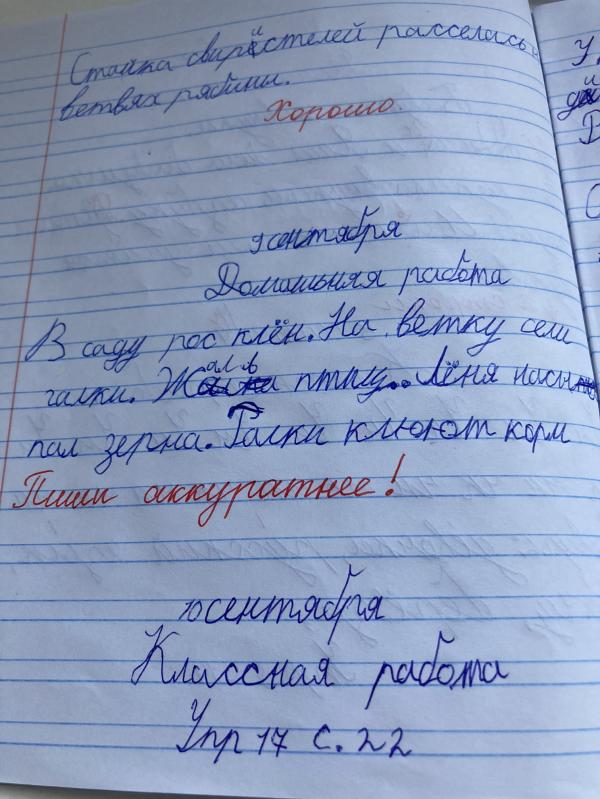 Стайка свиристелей расселась
ветвях рябины.
Хорошо.
9 сентября
Домашняя работа
В саду рос клён. На ветку сели
галки. Жалв птпцу.. Лёня насы
пал зерна. Галки клюют корм
Пиши аккуратнее!
10 сентября
Классная работа
Упр 17 с. 22